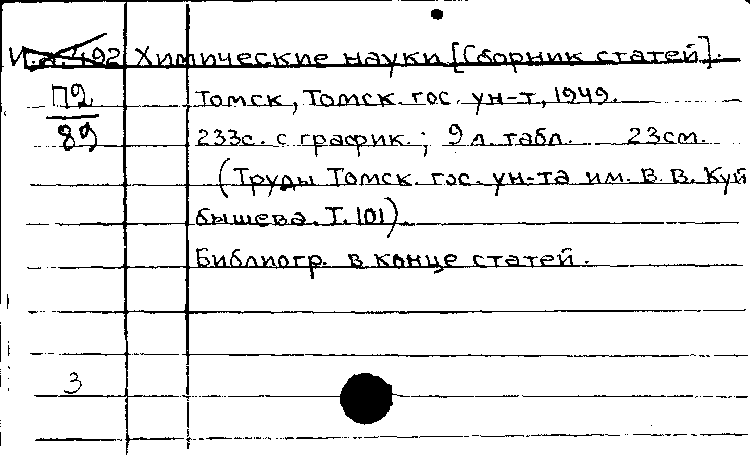 Химические науки [Сборник статей].
П2
89
Томск, Томск. гос. ун-т, 1949.
233с. с график.; 9 л. табл. 23см.
(Труды Томск. гос. ун-та им. В. В. Куй
бышева. Т. 101).
Библиогр. в конце статей.
3